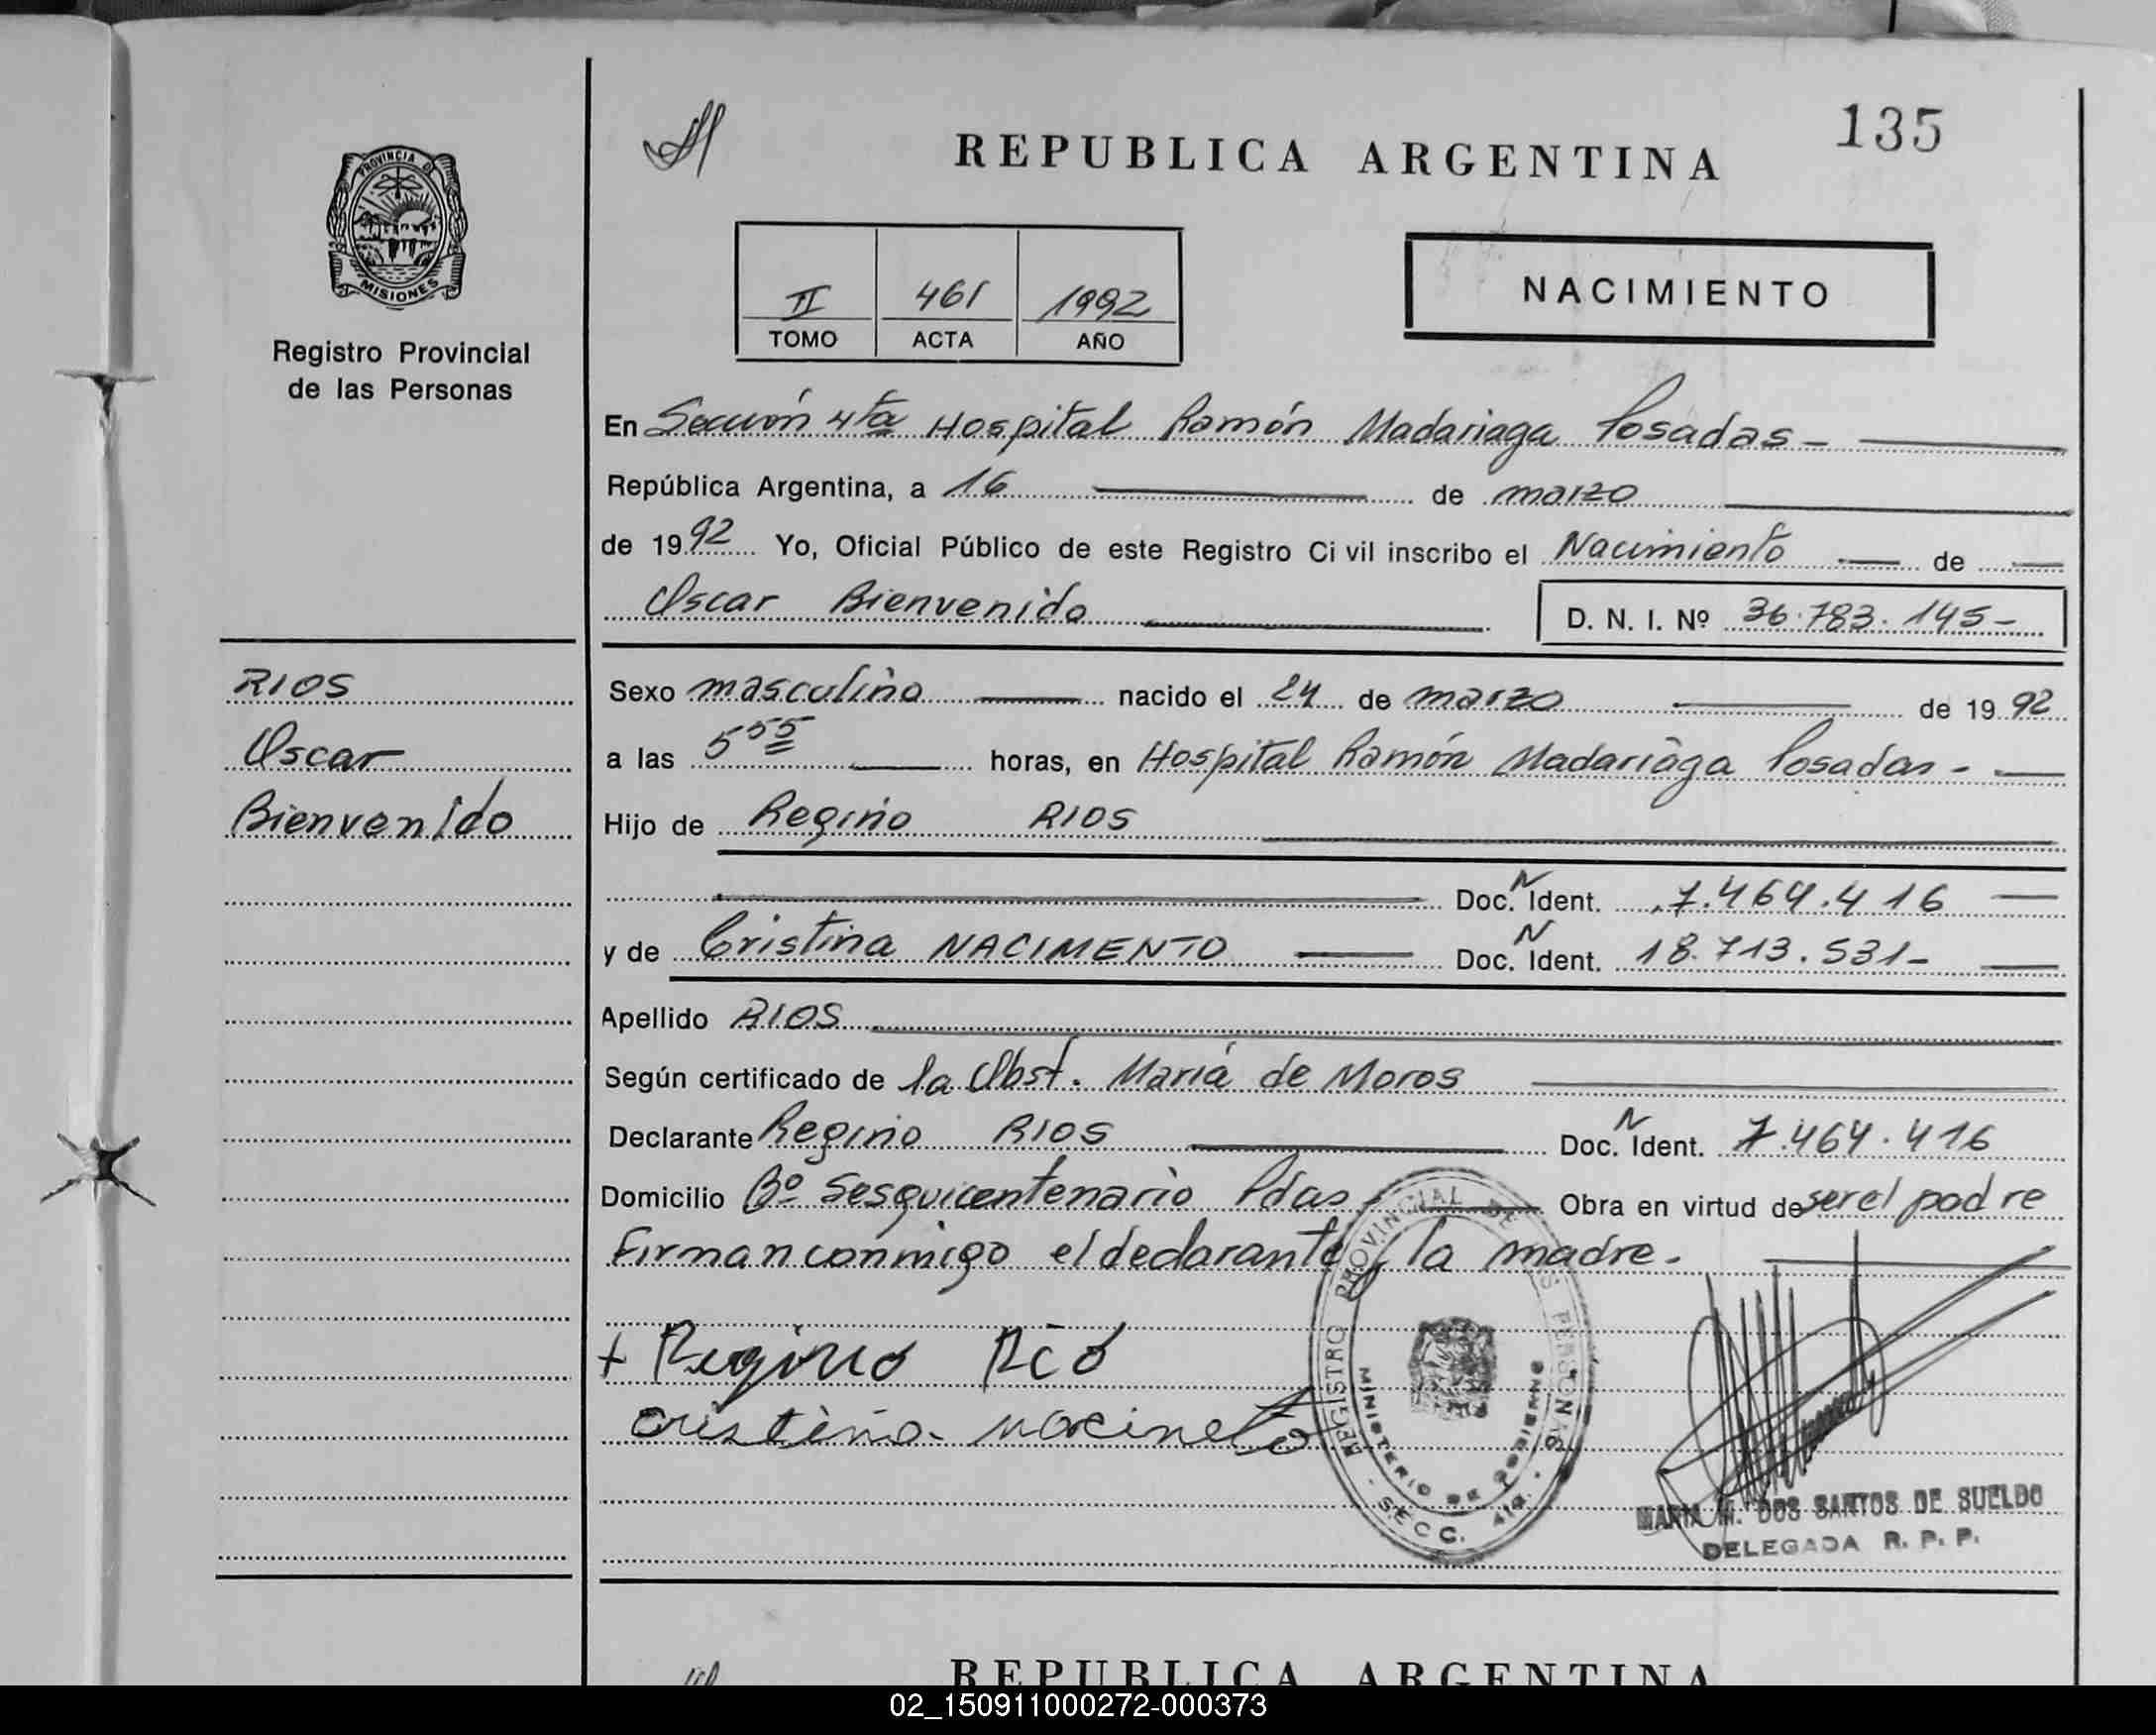 135
REPUBLICA ARGENTINA
PROVINCIA D
MISIONES
Registro Provincial
de las Personas
II 461 1992
TOMO ACTA AÑO
NACIMIENTO
En Sección 4ta Hospital Ramón Madariaga Posadas-
República Argentina, a 16 de marzo
de 1992 Yo, Oficial Público de este Registro Civil inscribo el Nacimiento de
Oscar Bienvenido
D. N. I. Nº 36.783.145-
RIOS
Oscar
Bienvenido
Sexo masculino nacido el 24 de marzo de 1992
a las 5 55 horas, en Hospital Ramón Madariaga Posadas-
Hijo de Regino RIOS
Doc. N Ident. 7.464.416
y de Cristina NACIMENTO Doc. N Ident. 18.713.531-
Apellido RIOS
Según certificado de la Obst. María de Moros
Declarante Regino RIOS Doc. N Ident. 7.464.416
Domicilio Bº Sesquicentenario Pdas Obra en virtud de ser el padre
Firman conmigo el declarante y la madre.
+ Regino Rio
cristina nacineto
REGISTRO PROVINCIAL DE LAS PERSONAS
MINISTERIO DE GOBIERNO
- SECC. 4ta. -
MARIA M. DOS SANTOS DE SUELDO
DELEGADA R. P. P.
REPUBLICA ARGENTINA
02_150911000272-000373